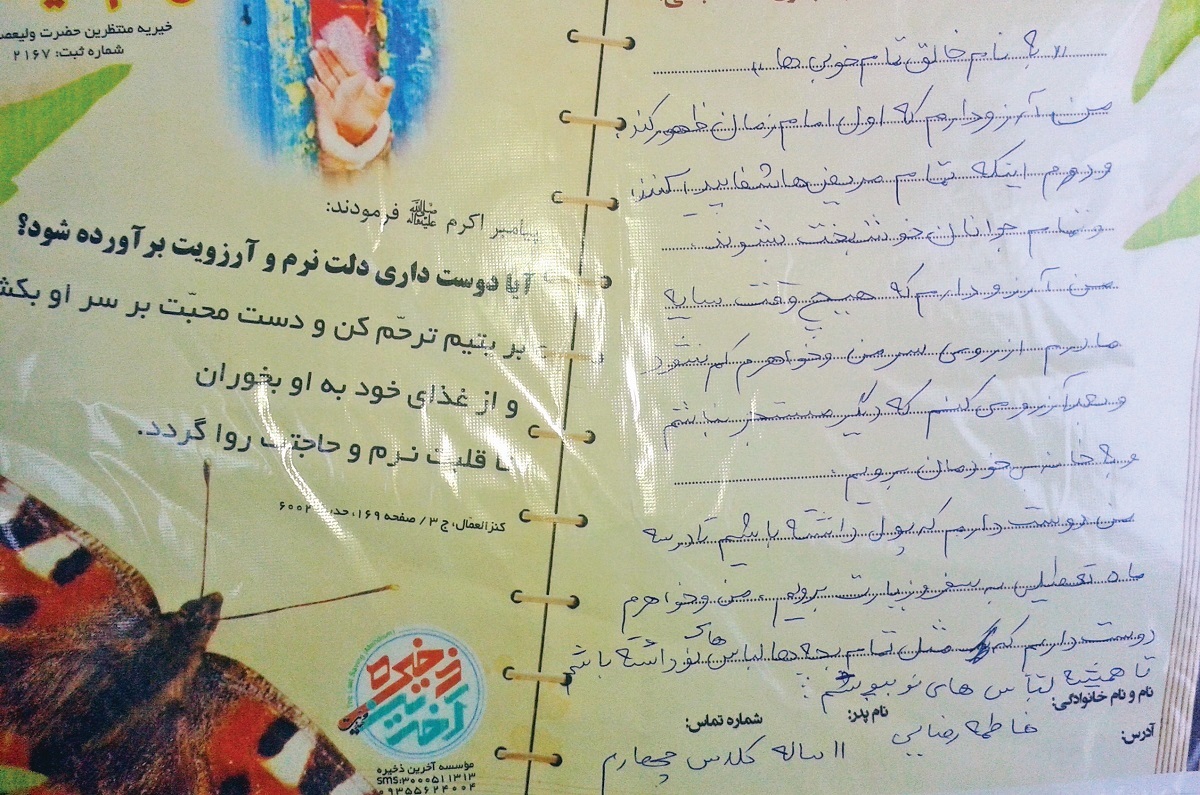 خیریه منتظرین حضرت ولیعصر
شماره ثبت: ۲۱۶۷
پیامبر اکرم ﷺ فرمودند:
آیا دوست داری دلت نرم و آرزویت برآورده شود؟
بر یتیم ترحّم کن و دست محبّت بر سر او بکش
و از غذای خود به او بخوران
تا قلبت نرم و حاجتت روا گردد.
کنزالعمّال، ج ۳ / صفحه ۱۶۹، حدیث ۶۰۰۲
آخرین ذخیره
موسسه آخرین ذخیره
sms:۳۰۰۰۵۱۱۳۱۳
۰۹۳۵۵۶۲۴۰۰۴
" به نام خالق تمام خوبی ها "
من آرزو دارم که اول امام زمان ظهور کند.
و دوم اینکه تمام مریض ها شفا پیدا کنند
و تمام جوانان خوشبخت بشوند.
من آرزو دارم که هیچ وقت سایه
مادرم از روی سر من و خواهرم کم نشود
و بعد آرزو می کنم که دیگر مستجر نباشم
و به خانه خودمان برویم.
من دوست دارم که پول داشته باشیم تا در سه
ماه تعطیلی به سفر و زیارت برویم. من و خواهرم
دوست داریم که مثل تمام بچه ها لباس های نو داشته باشم
تا همیشه لباس های نو بپوشم.
نام و نام خانوادگی:
نام پدر:
شماره تماس:
آدرس:
فاطمه رضایی
۱۱ ساله کلاس چهارم